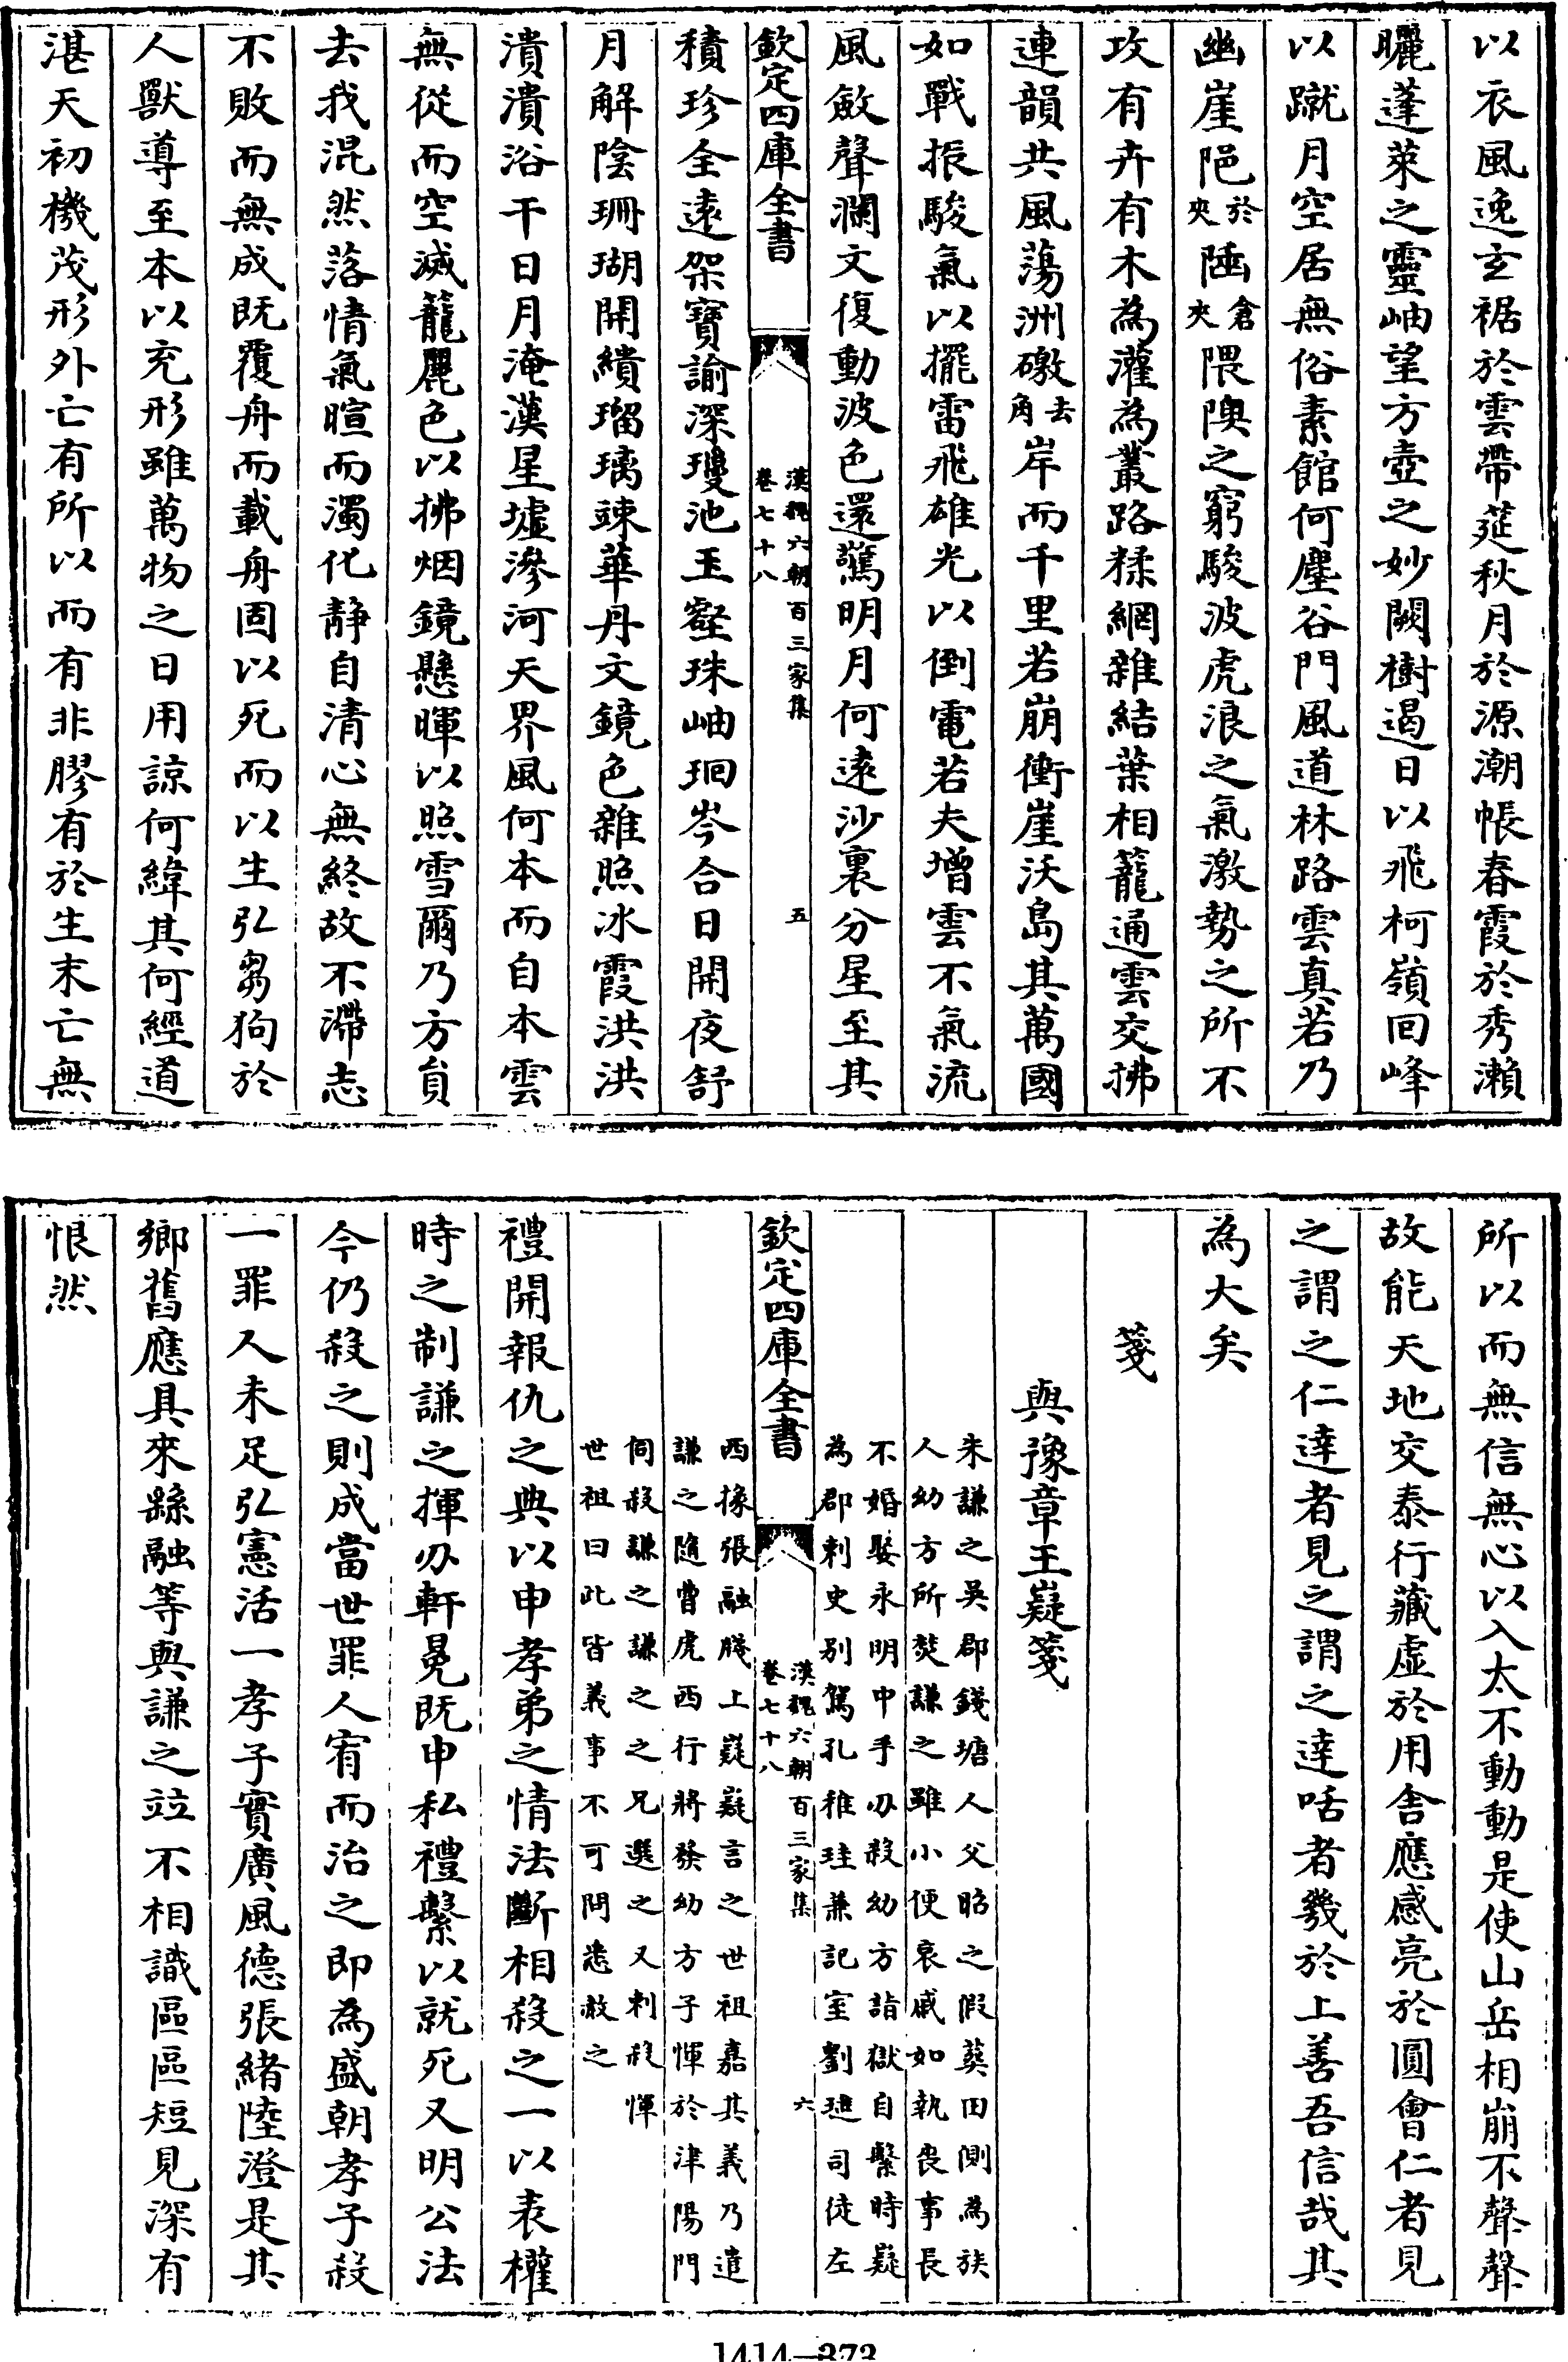 以衣風逸玄裾於雲帶莚秋月於源潮帳春霞於秀瀨
曬蓬萊之靈岫望方壺之妙闕樹遏日以飛柯嶺回峰
以蹴月空居無俗素館何塵谷門風道林路雲真若乃
幽崖𨹟於夾陿倉夾隈隩之窮駿波虎浪之氣激勢之所不
攻有卉有木為灌為叢路糅網雜結葉相籠通雲交拂
連韻共風蕩洲礉去角岸而千里若崩衝崖沃島其萬國
如戰振駿氣以擺雷飛雄光以倒電若夫增雲不氣流
風敛聲瀾文復動波色還驚明月何遠沙裏分星至其
欽定四庫全書
漢魏六朝百三家集
卷七十八
五
積珍全遠架寶諭深瓊池玉壑珠岫珦岑合日開夜舒
月解陰珊瑚開繢瑠璃竦華丹文鏡色雜照冰霞洪洪
潰潰浴干日月淹漢星墟滲河天界風何本而自本雲
無從而空滅籠麗色以拂烟鏡懸暉以照雪爾乃方負
去我混然落情氣暄而濁化靜自清心無終故不滯志
不敗而無成既覆舟而載舟固以死而以生弘芻狗於
人獸導至本以充形雖萬物之日用諒何緯其何經道
湛天初機茂形外亡有所以而有非膠有於生末亡無
所以而無信無心以入太不動動是使山岳相崩不聲聲
故能天地交泰行藏虛於用舍應感亮於圓會仁者見
之謂之仁達者見之謂之達咶者幾於上善吾信哉其
為大矣
箋
與豫章王嶷箋
朱謙之吳郡錢塘人父昭之假葬田側為族
人幼方所焚謙之雖小便哀戚如執喪事長
不婚娶永明中手刃殺幼方詣獄自繫時嶷
為郡刺史别駕孔稚珪兼記室劉璡司徒左
欽定四庫全書
漢魏六朝百三家集
卷七十八
六
西掾張融牋上嶷嶷言之世祖嘉其義乃遣
謙之隨曹虎西行將發幼方子惲於津陽門
伺殺謙之謙之之兄選之又刺殺惲
世祖曰此皆義事不可問悉赦之
禮開報仇之典以申孝弟之情法斷相殺之一以表權
時之制謙之揮刃軒冕既申私禮繫以就死又明公法
今仍殺之則成當世罪人宥而治之即為盛朝孝子殺
一罪人未足弘憲活一孝子實廣風德張緒陸澄是其
鄉舊應具來繇融等與謙之竝不相識區區短見深有
恨然
1414—373